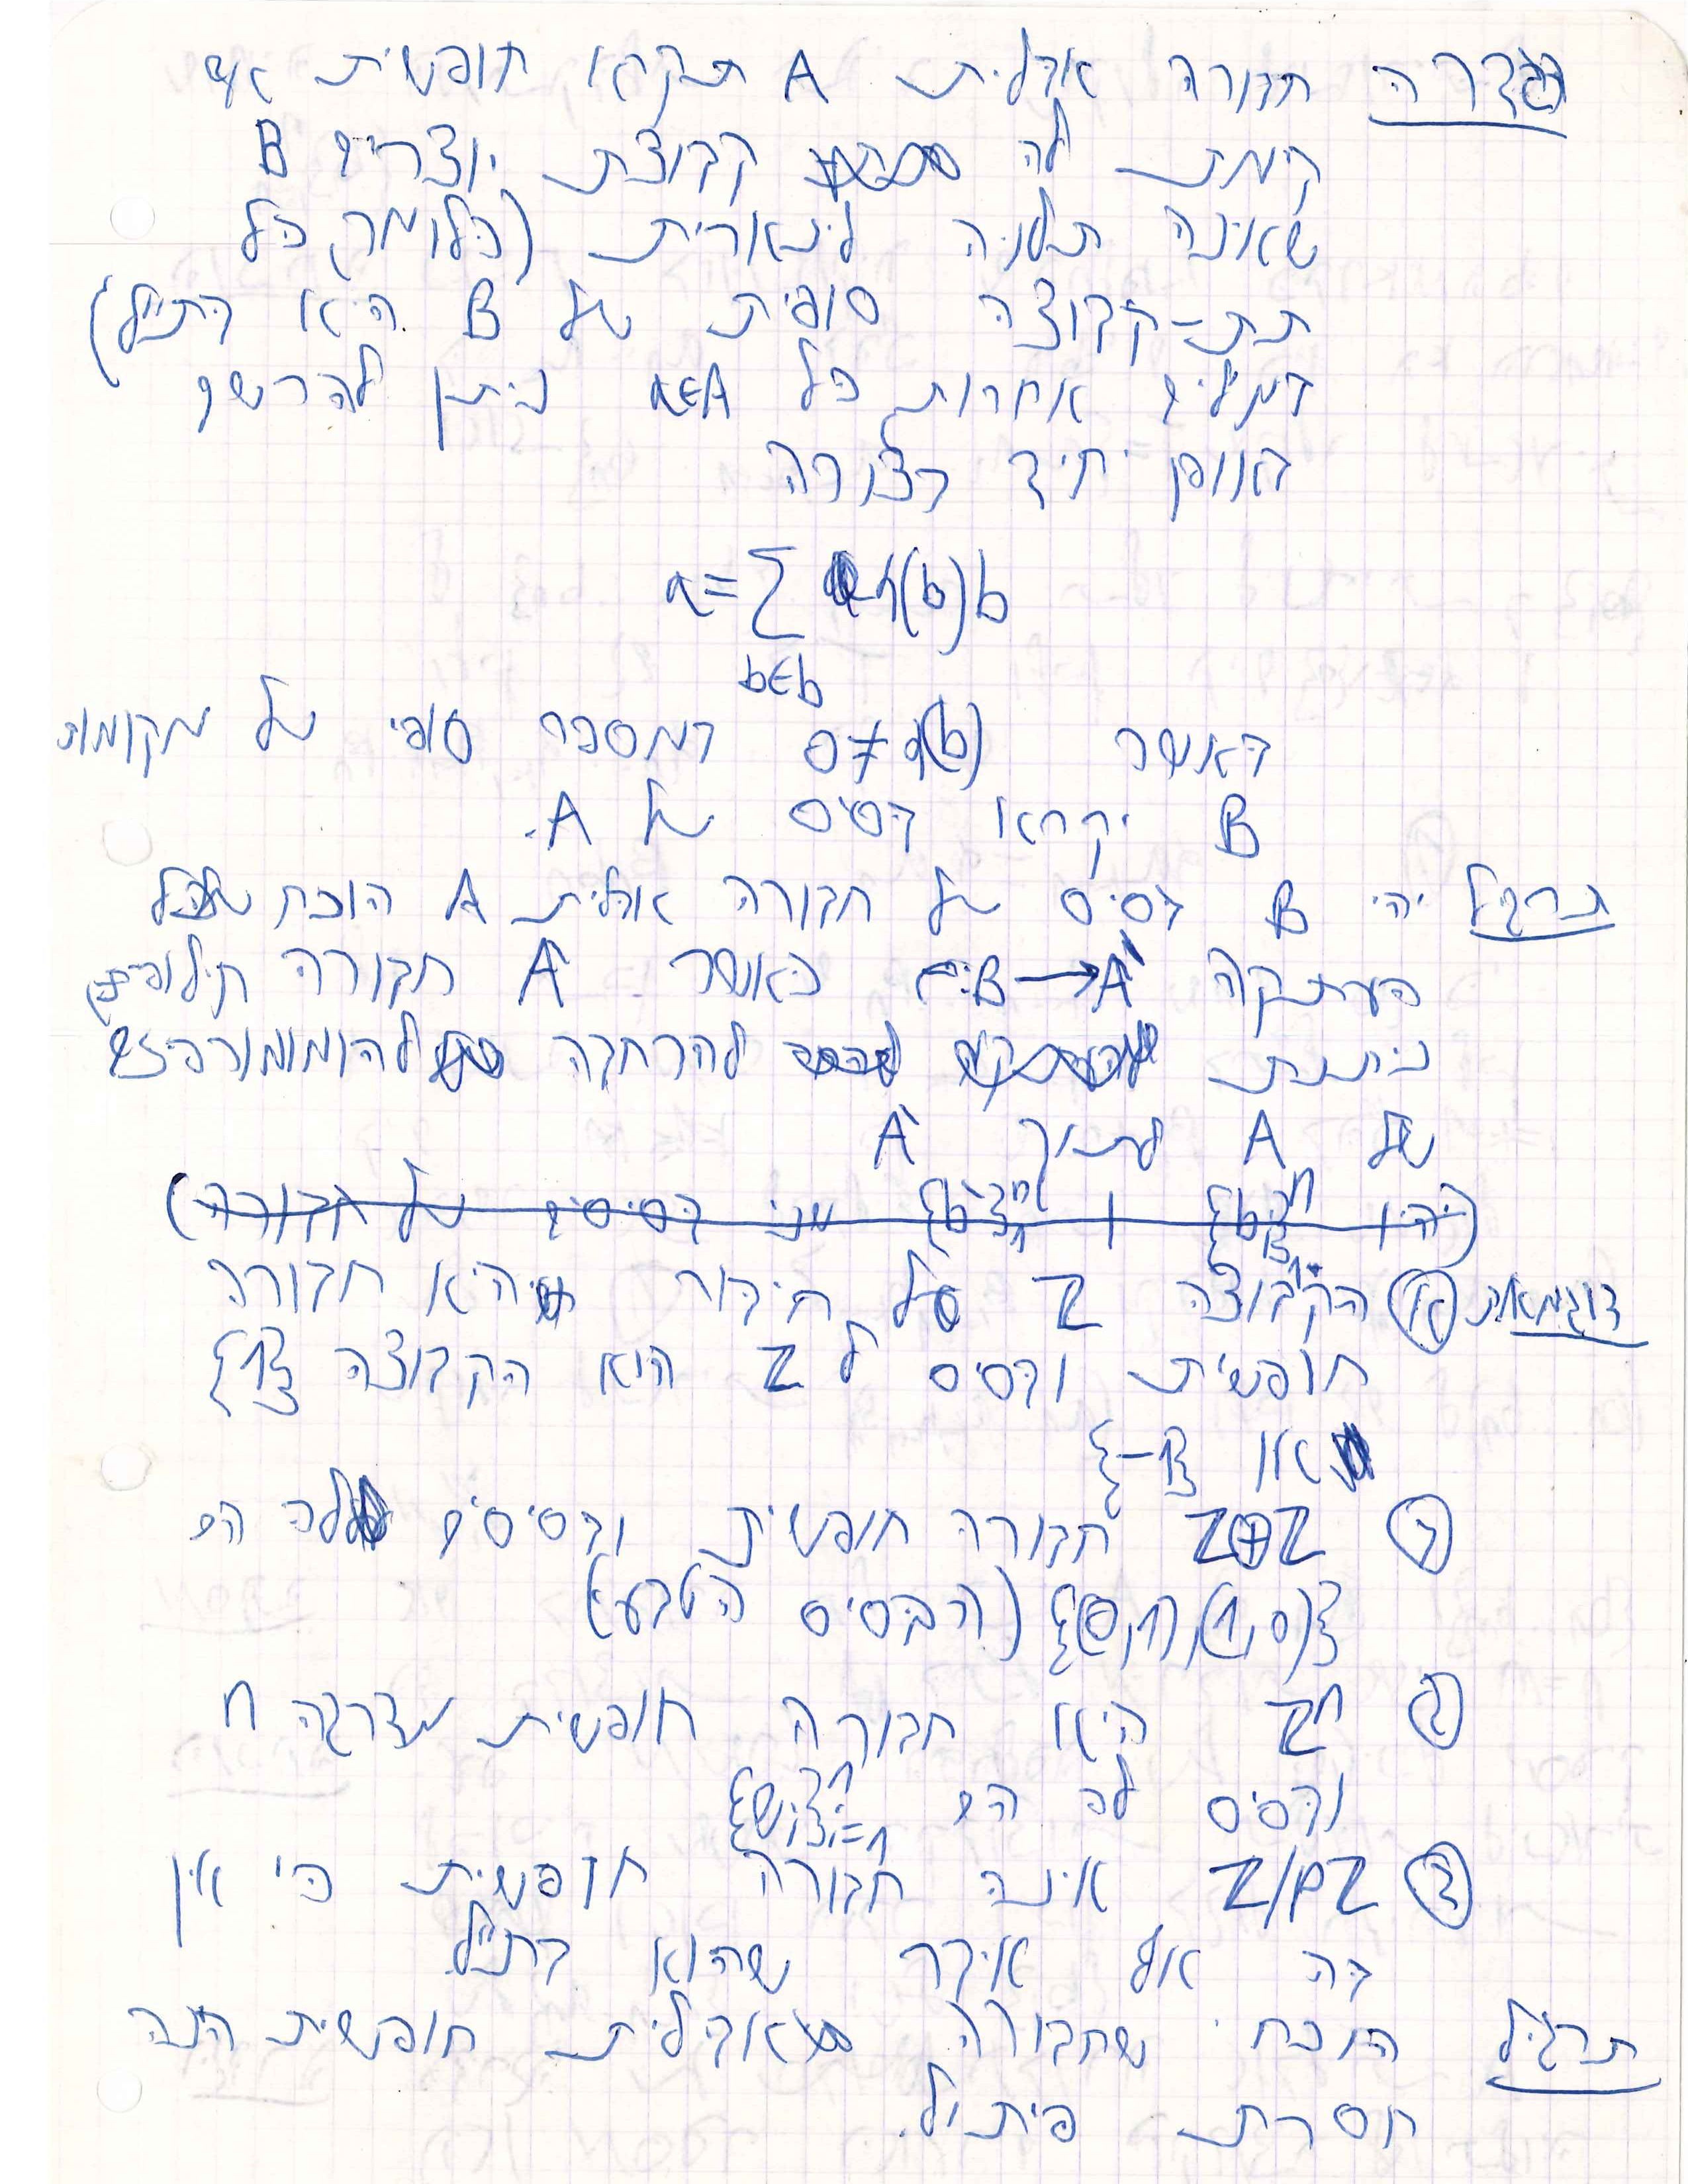 הגדרה חבורה אבלית A תקרא חופשית אם
קימת לה קבוצת יוצרים B
שאינה תלויה לינארית (כלומר, כל
תת-קבוצה סופית של B היא בת"ל)
במלים אחרות כל a∈A ניתן להרשם
באופן יחיד בצורה
a=∑ η(b)b
b∈b
כאשר η(b)≠0 במספר סופי של מקומות
B יקרא בסיס של A.
תרגיל יהי B בסיס של חבורה אבלית A הוכח שכל
העתקה B→A' כאשר A' חבורה חילופית,
ניתנת להרחבה להומומורפיזם
של A לתוך A'
(יהיו ו שני בסיסים של חבורה)
דוגמאות א) הקבוצה Z על חיבור היא חבורה
חופשית ובסיס ל Z הוא הקבוצה {1}
או {-1}
ב) Z⊕Z חבורה חופשית ובסיסים לה הם
{(0,1),(1,0)} (הבסיס הטבעי)
ג) Zⁿ היא חבורה חופשית מדרגה n
ובסיס לה הם
ד) Z/pZ אינה חבורה חופשית כי אין
בה אף איבר שהוא בת"ל
תרגיל הוכח שחבורה אבלית חופשית הנה
חסרת פיתול.